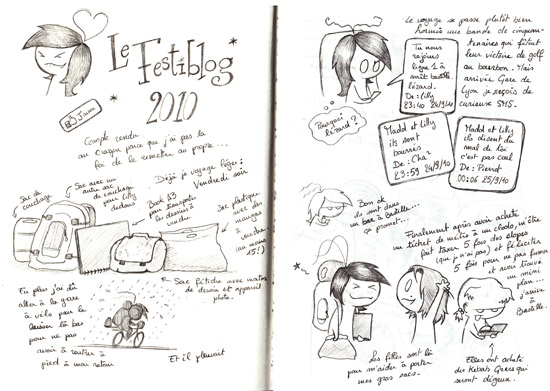 Le
Festiblog
2010
Compte rendu
au crayon parce que j'ai pas la
foi de le remettre au propre...
Déjà je voyage léger :
Vendredi soir
Sac de
couchage
Sac avec un
autre sac
de couchage
pour Lilly
dedans
Book A3
pour
les dessins à
vendre
Sac plastique
avec des
mangas
à
vendre
(au moins
15!)
Sac fétiche avec matos
de dessin et appareil
photo.
En plus j'ai dû
aller à la gare
à vélo pour le
laisser là bas
pour ne pas
avoir à rentrer à
pied à mat retour
Et il pleuvait
Le voyage se passe plutôt bien
hormis une bande de cinquan-
tenaires qui fêtent
leur victoire de golf
au bourbon. Mais
arrivée Gare de
Lyon je reçois de
curieux SMS.
Tu nous
rejoins
ligne 1 à
arrêt bastille
lézard.
De : Lilly
23:40 24/9/10
Pourquoi
lézard ?
Madd et Lilly
ils sont
bourrés
De : Cha
23:59 24/9/10
Madd et Lilly
ils disent du
mal de toi
c'est pas cool
De : Pierrot
00:06 25/9/10
Bon ok
ils sont dans
un bar à Bastille...
ça promet...
Finalement après avoir acheté
un ticket de métro à un clodo, m'être
fait taxer 5 fois des clopes
(que j'n'ai pas) et féliciter
5 fois pour ne pas fumer
et avoir trouvé
un mini
plan...
j'arrive
à
Bastille.
Les filles sont là
pour m'aider à porter
mes gros sacs.
Elles ont acheté
des Kebabs Grecs qui
sont dégueux.